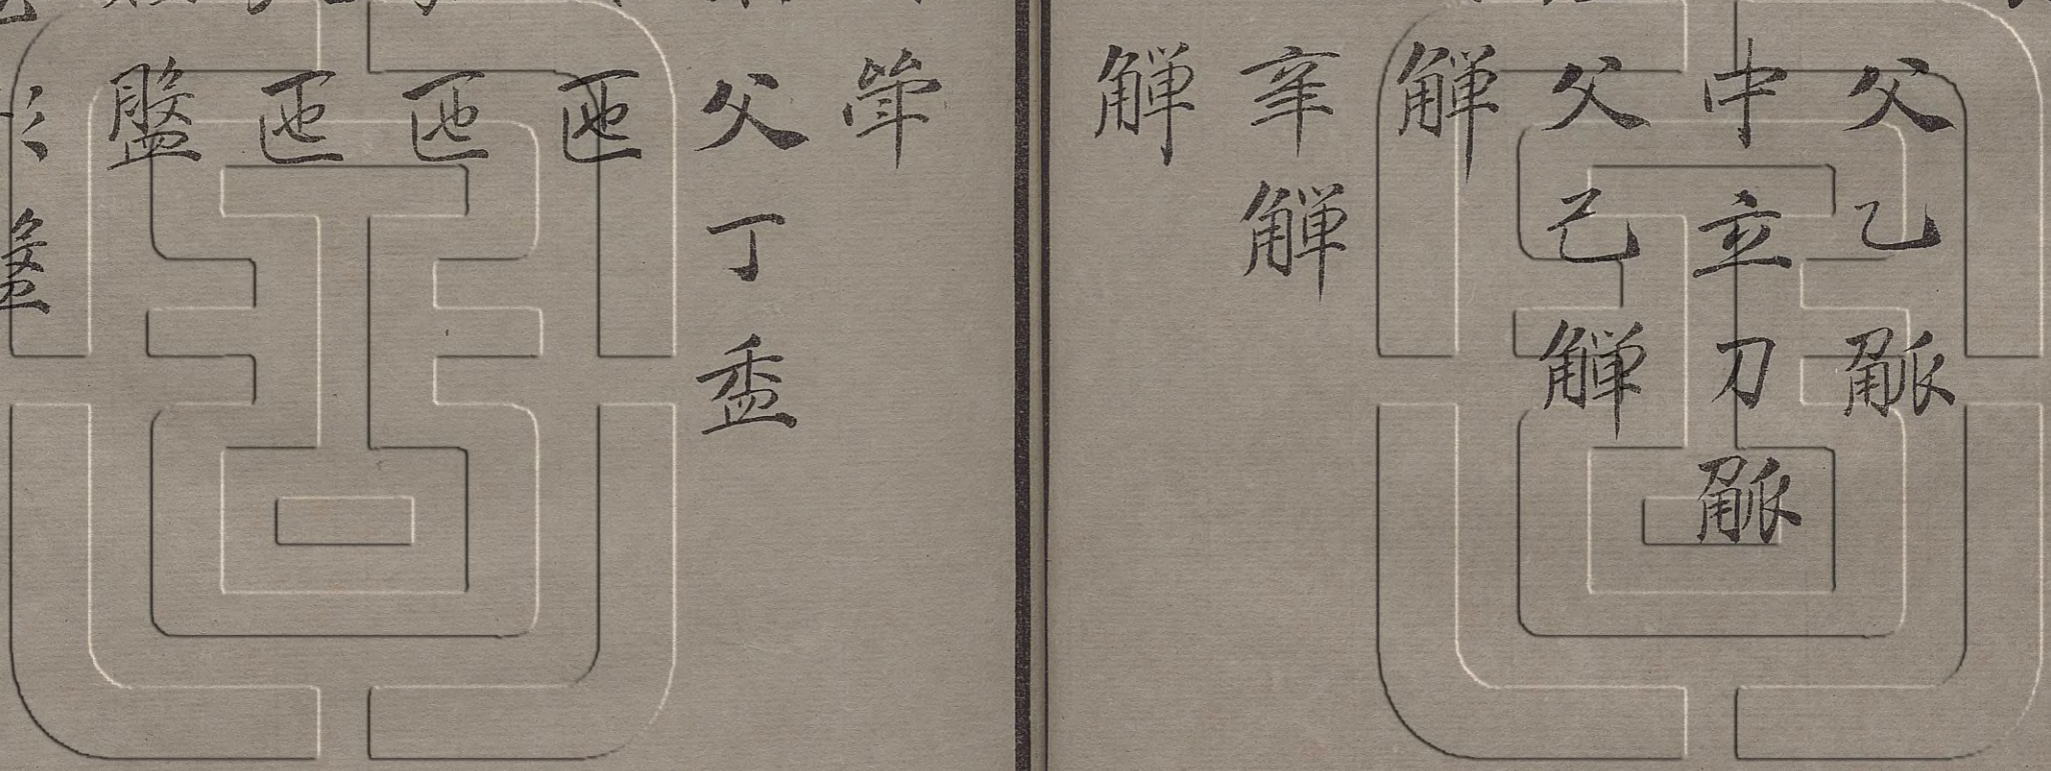 父乙觚
中立刀觚
父己觶
觶
辛觶
觶
斝
父丁盉
匜
匜
匜
盤